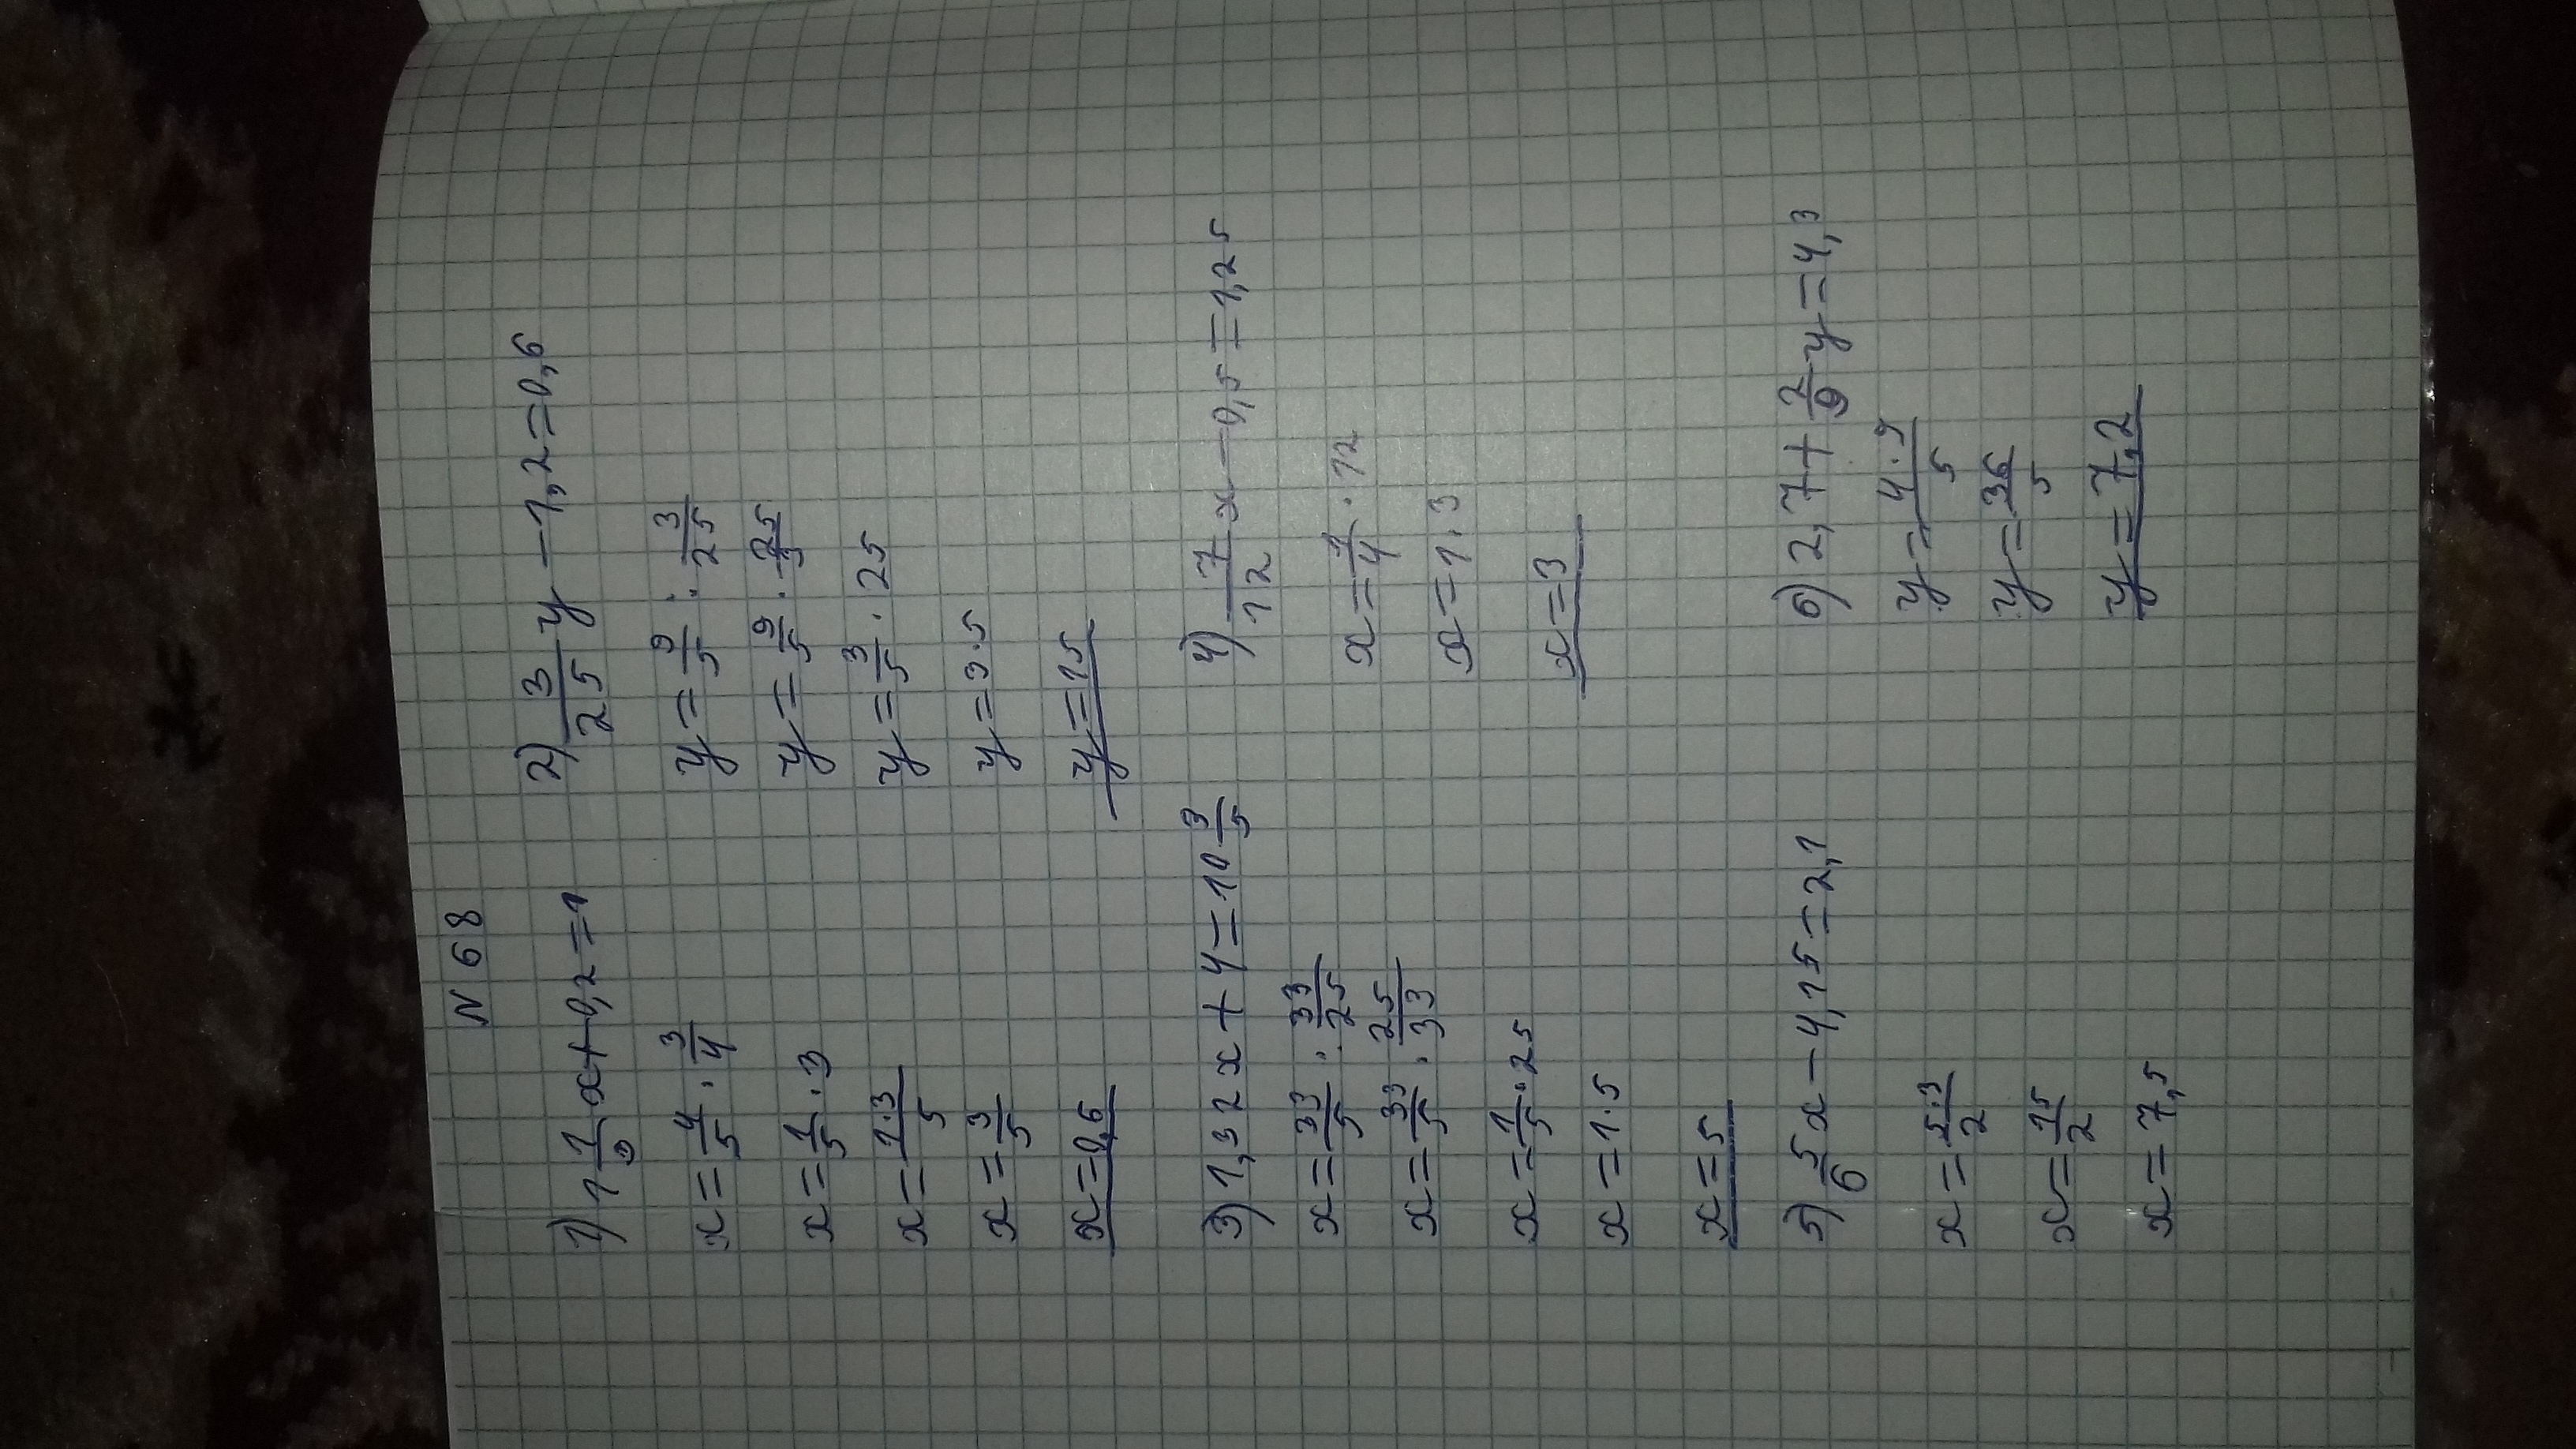 N 68
1) 1 1/3 x + 0,2 = 1
x = 4/5 · 3/4
x = 1/5 · 3
x = 1·3/5
x = 3/5
x = 0,6
2) 3/25 y - 1,2 = 0,6
y = 9/5 : 3/25
y = 9/5 · 25/3
y = 3/5 · 25
y = 3·5
y = 15
3) 1,32 x + 4 = 10 3/5
x = 33/5 : 33/25
x = 33/5 · 25/33
x = 1/5 · 25
x = 1·5
x = 5
4) 7/12 x - 0,5 = 1,25
x = 1/4 · 12
x = 1·3
x = 3
5) 5/6 x - 4,15 = 2,1
x = 5·3/2
x = 15/2
x = 7,5
6) 2,7 + 2/9 y = 4,3
y = 4·9/5
y = 36/5
y = 7,2